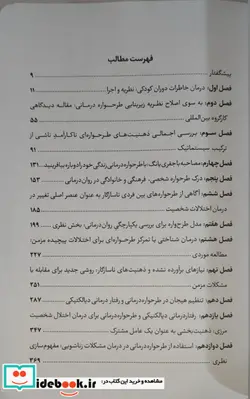 فهرست مطالب
پیشگفتار ۹
فصل اول: درمان خاطرات دوران کودکی: نظریه و اجرا ۱۱
فصل دوم: به سوی اصلاح نظریه زیربنایی طرحواره درمانی: مقاله دیدگاهی
کارگروه بین‌المللی ۵۵
فصل سوم: بررسی اجمالی ذهنیت‌های طرحواره‌ای ناکارآمد ناشی از
ترکیب سیستماتیک ۹۱
فصل چهارم: مصاحبه با جفری یانگ: با طرحواره درمانی زندگی خود را دوباره بیافرینید ۱۳۱
فصل پنجم: درک طرحواره شخصی، فرهنگی و خانوادگی در روان‌درمانی ۱۵۳
فصل ششم: آگاهی از طرحواره‌های بین فردی ناسازگار به عنوان عنصر اصلی تغییر در
درمان اختلالات شخصیت ۱۸۵
فصل هفتم: مدل طرح‌واره برای بررسی یکپارچگی روان‌درمانی: بخش نظری ۱۹۹
فصل هشتم: درمان شناختی با تمرکز طرحواره‌ای برای اختلالات پیچیده مزمن:
مطالعه موردی ۲۲۷
فصل نهم: نیازهای برآورده نشده و ذهنیت‌های ناسازگار: روشی جدید برای مقابله با
مشکلات مزمن ۲۵۱
فصل دهم: تنظیم هیجان در طرحواره‌درمانی و رفتار درمانی دیالکتیکی ۲۸۷
فصل یازدهم: رفتاردرمانی دیالکتیکی و طرحواره‌درمانی برای درمان اختلال شخصیت
مرزی: ذهنیت‌بخشی به‌عنوان یک عامل مشترک ۳۴۷
فصل دوازدهم: استفاده از طرحواره‌درمانی در درمان مشکلات زناشویی: مفهوم‌سازی
نظری ۳۶۹
مشاهده و خرید این کتاب در:
iidebook.ir